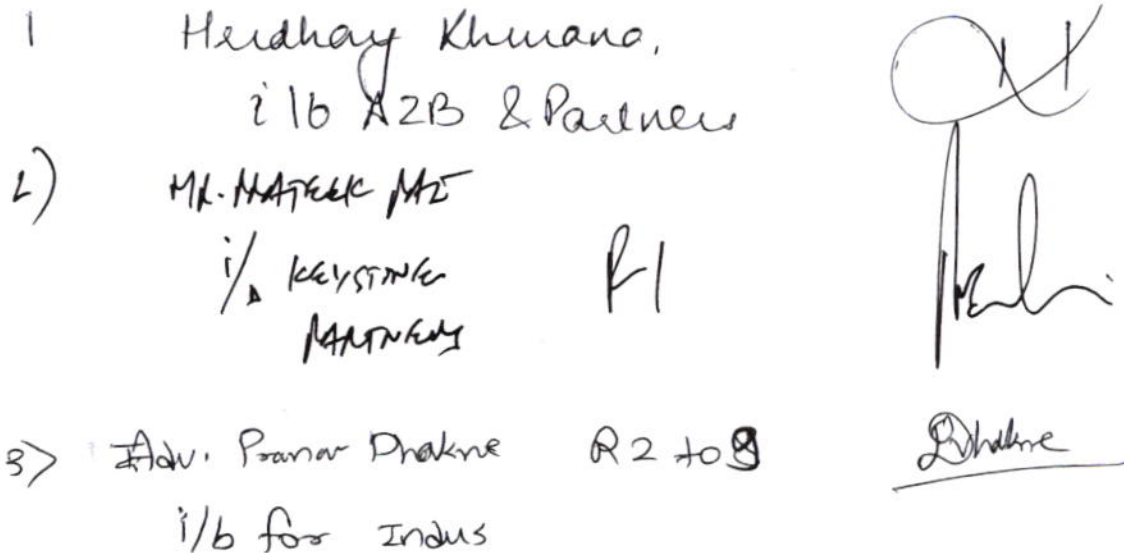 1 Herdhay Khurana,
i/b A2B & Partners
2) MR. PRATEEK
i/b KEYSTONE R1
PARTNERS
3) Adv. Pranav Dhakne R2 to 9
i/b for Indus
Dhakne